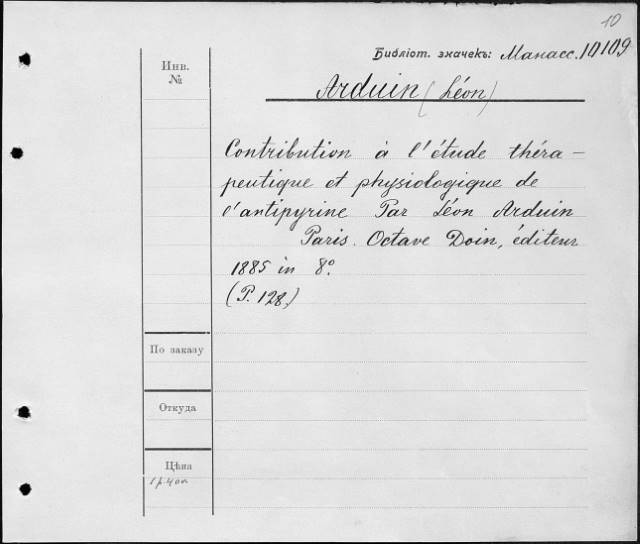 10
Библіот. значекъ: Манасс. 10109
Инв.
№
Arduin (Léon)
Contribution à l'étude théra-
peutique et physiologique de
l'antipyrine Par Léon Arduin
Paris. Octave Doin, éditeur
1885 in 8º.
(P. 128.)
По заказу
Откуда
Цѣна
1 р. 40 к